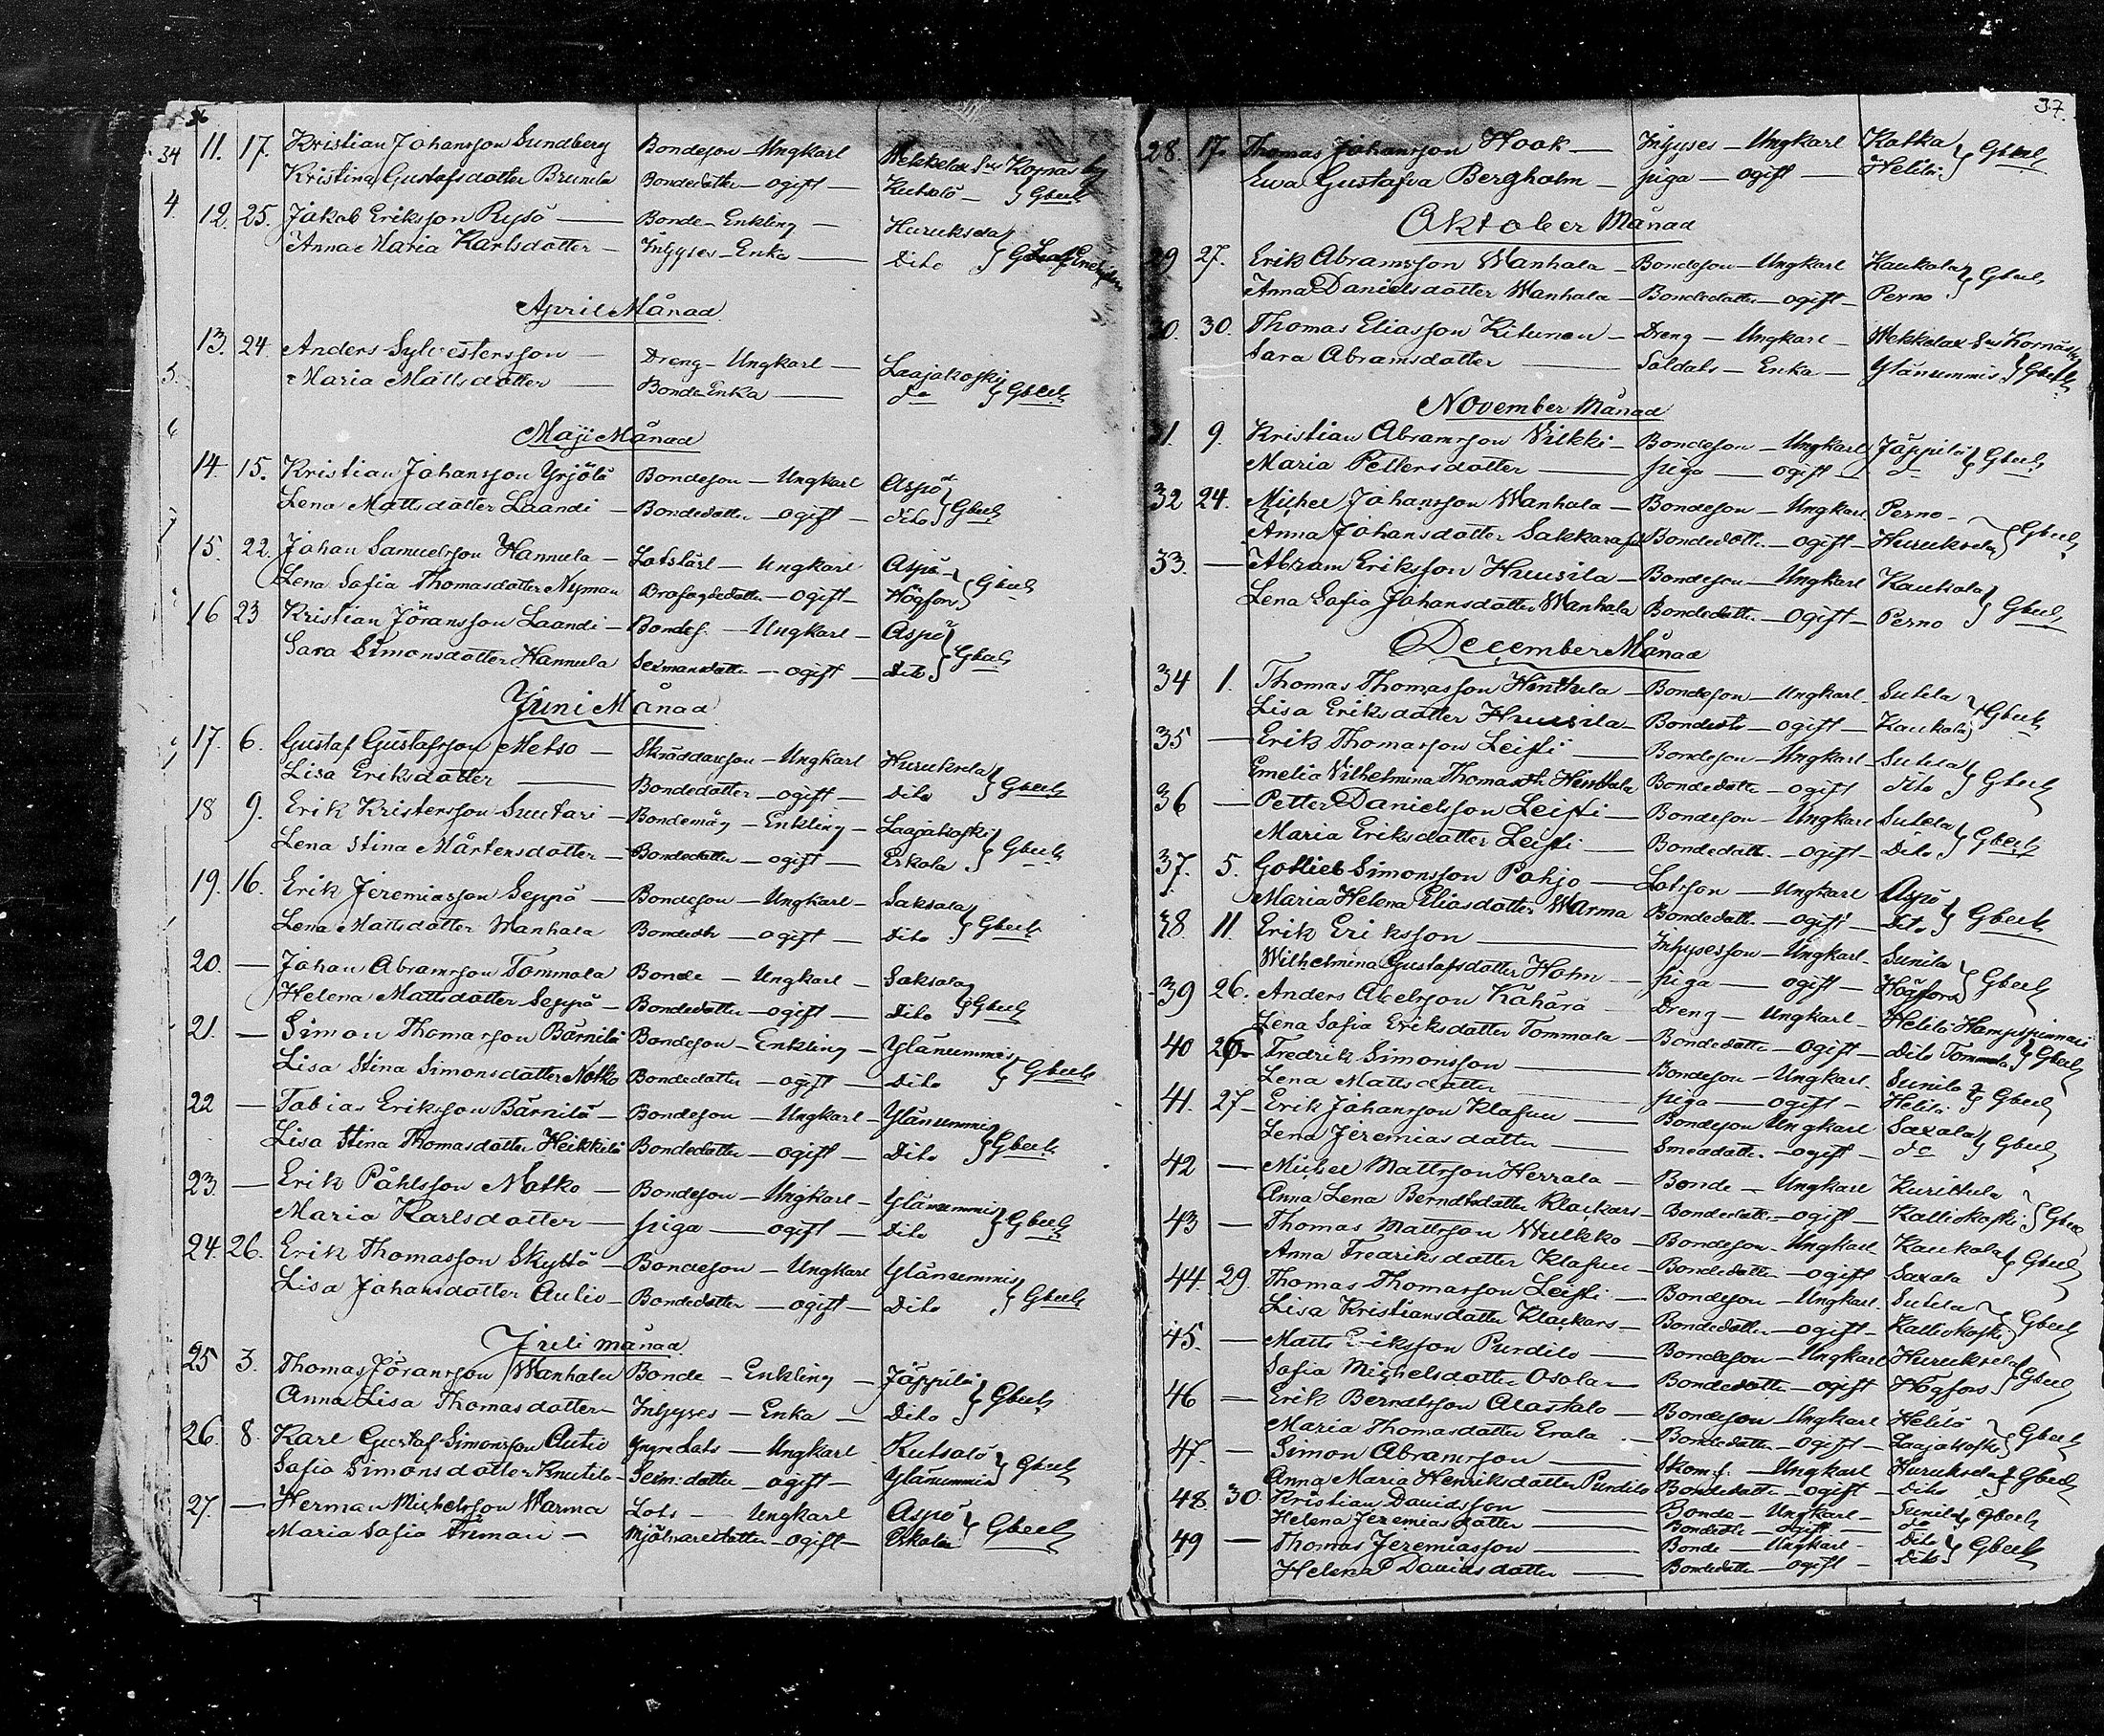 36
34 11. 17. Kristian Johansson Sundberg Bondeson – Ungkarl Wekkelax Sn Kornäs by
Kristina Gustafsdotter Brunila Bondedotter – ogift – Kutsalö – } Gbech
4. 12. 25. Jakob Eriksson Rysö — Bonde – Enkling – Huruksela
Anna Maria Karlsdotter – Inhyses – Enka — Dito }
April Månad
13. 24. Anders Sylvestersson — Dreng – Ungkarl – Laajakoski
5. Maria Mattsdotter — Bonde Enka — do } Gbech
6 Maji Månad
14. 15. Kristian Johansson Yrjölä Bondeson – Ungkarl Aspö
Lena Mattsdotter Laandi – Bondedotter – ogift – dito } Gbech
7
15. 22. Johan Samuelsson Hannula – Lotskarl – Ungkarl Aspö –
Lena Sofia Thomasdotter Nyman – ogift – Högfors } Gbech
16 23 Kristian Jöransson Laandi – Bondes. – Ungkarl – Aspö
Sara Simonsdotter Hannula Sexmansdotter – ogift – dito } Gbech
Juni Månad
17. 6. Gustaf Gustafsson Metso – Skräddareson – Ungkarl Huruksela
Lisa Eriksdotter — Bondedotter – ogift – Dito } Gbech
18 9. Erik Kristersson Suutari – Bondemåg – Enkling – Laajakoski
Lena Stina Mårtensdotter – Bondedotter – ogift – Erkola } Gbech
19. 16. Erik Jeremiasson Seppä – Bondeson – Ungkarl – Saksala
Lena Mattsdotter Wanhala Bondedtr – ogift – Dito } Gbech
20. — Johan Abramsson Tommola Bonde – Ungkarl – Saksala
Helena Mattsdotter Seppä – Bondedotter – ogift – Dito } Gbech
21. — Simon Thomasson Bärnilä Bondeson – Enkling – Ylänummis
Lisa Stina Simonsdotter Notko Bondedotter – ogift – Dito } Gbech
22 — Tobias Eriksson Bärnilä – Bondeson – Ungkarl – Ylänummis
Lisa Stina Thomasdotter Heikkilä Bondedotter – ogift – Dito } Gbech
23. — Erik Påhlsson Notko – Bondeson – Ungkarl – Ylänummis
Maria Karlsdotter – piga — ogift – Dito } Gbech
24. 26. Erik Thomasson Skyttä – Bondeson – Ungkarl Ylänummis
Lisa Johansdotter Autio – Bondedotter – ogift – Dito } Gbech
Juli månad
25 3. Thomas Jöransson Wanhala Bonde – Enkling – Jäppilä
Anna Lisa Thomasdotter – Inhyses – Enka – Dito } Gbech
26. 8. Karl Gustaf Simonsson Autio Yngre Lots – Ungkarl Kutsalö
Sofia Simonsdotter Knutila – Sexm: dotter – ogift – Ylänummis } Gbech
27. — Herman Michelsson Warma Lots – Ungkarl Aspö
Maria Sofia – Mjölnaredotter – ogift – } Gbech
37.
28. 17. Thomas Johansson Hook — Inhyses – Ungkarl Kotka
Ewa Gustafva Bergholm – piga – ogift — Helilä } Gbech
Oktober Månad
29 27. Erik Abramsson Wanhala – Bondeson – Ungkarl Kaukola
Anna Danielsdotter Wanhala – Bondedotter – ogift – Perno } Gbech
30. 30. Thomas Eliasson Kitunen – Dreng – Ungkarl – Wekkelax Sn Kornäs by
Sara Abramsdotter — Soldats – Enka – Ylänummis } Gbech
November Månad
31 9. Kristian Abramsson Vilkki – Bondeson – Ungkarl Jäppilä
Maria Pettersdotter — piga – ogift – do } Gbech
32 24. Michel Johansson Wanhala – Bondeson – Ungkarl Perno –
Anna Johansdotter Bondedotter – ogift – Huruksela } Gbech
33. — Abram Eriksson Huusila – Bondeson – Ungkarl Kaukola
Lena Sofia Johansdotter Wanhala Bondedotter – ogift – Perno } Gbech
December Månad
34 1. Thomas Thomasson Hinttula – Bondeson – Ungkarl – Sutela
Lisa Eriksdotter Huusila – Bondedtr – ogift – Kaukola } Gbech
35 — Erik Thomasson Leisti — Bondeson – Ungkarl – Sutela
Emelia Vilhelmina Thomasdtr Hinttula Bondedotter – ogift dito } Gbech
36 — Petter Danielsson Leisti – Bondeson – Ungkarl Sutela
Maria Eriksdotter Leisti – Bondedott. – ogift – Dito } Gbech
37. 5. Gotlieb Simonsson Pohjo – Lotsson – Ungkarl Aspö
Maria Helena Eliasdotter Warma Bondedott. – ogift – Dito } Gbech
38. 11. Erik Eriksson — Inhysesson – Ungkarl – Sunila
Wilhelmina Gustafsdotter Holm – piga – ogift – Högfors } Gbech
39 26. Anders Abelsson Kähärä – Dreng – Ungkarl – Helilä
Lena Sofia Eriksdotter Tommola – Bondedotter – ogift – Dito Tommola } Gbech
40 26 – Fredrik Simonsson — Bondeson – Ungkarl – Sunila
Lena Mattsdotter — piga – ogift – Helilä } Gbech
41. 27 – Erik Johansson Klasuu — Bondeson Ungkarl Saxala
Lena Jeremiasdotter — Smeddotter – ogift – do } Gbech
42 — Michel Mattsson Herrala – Bonde – Ungkarl Kurittula
Anna Lena Berndtsdotter Klackars – Bondedotter – ogift – Kalliokoski } Gbech
43 — Thomas Mattsson Wulkko – Bondeson – Ungkarl Kaukola
Anna Fredriksdotter Klasuu – Bondedotter – ogift Saxala } Gbech
44. 29. Thomas Thomasson Leisti – Bondeson – Ungkarl – Sutela
Lisa Kristiansdotter Klackars – Bondedotter – ogift – Kalliokoski } Gbech
45. — Matts Eriksson Purdilo — Bondeson – Ungkarl Huruksela
Sofia Michelsdotter Osola – Bondedotter – ogift Högfors } Gbech
46 — Erik Berndtsson Alastalo – Bondeson Ungkarl Helilä
Maria Thomasdotter Erola – Bondedotter – ogift – Laajakoski } Gbech
47. — Simon Abramsson — Skom.s. – Ungkarl Huruksela
Anna Maria Henriksdotter Purdilo Bondedotter – ogift – Dito } Gbech
48 30. Kristian Davidsson — Bonde – Ungkarl – Sunila
Helena Jeremiasdotter — Bondedtr – ogift – do } Gbech
49 — Thomas Jeremiasson — Bonde – Ungkarl – Dito
Helena Davidsdotter — Bondedotter – ogift – Dito } Gbech